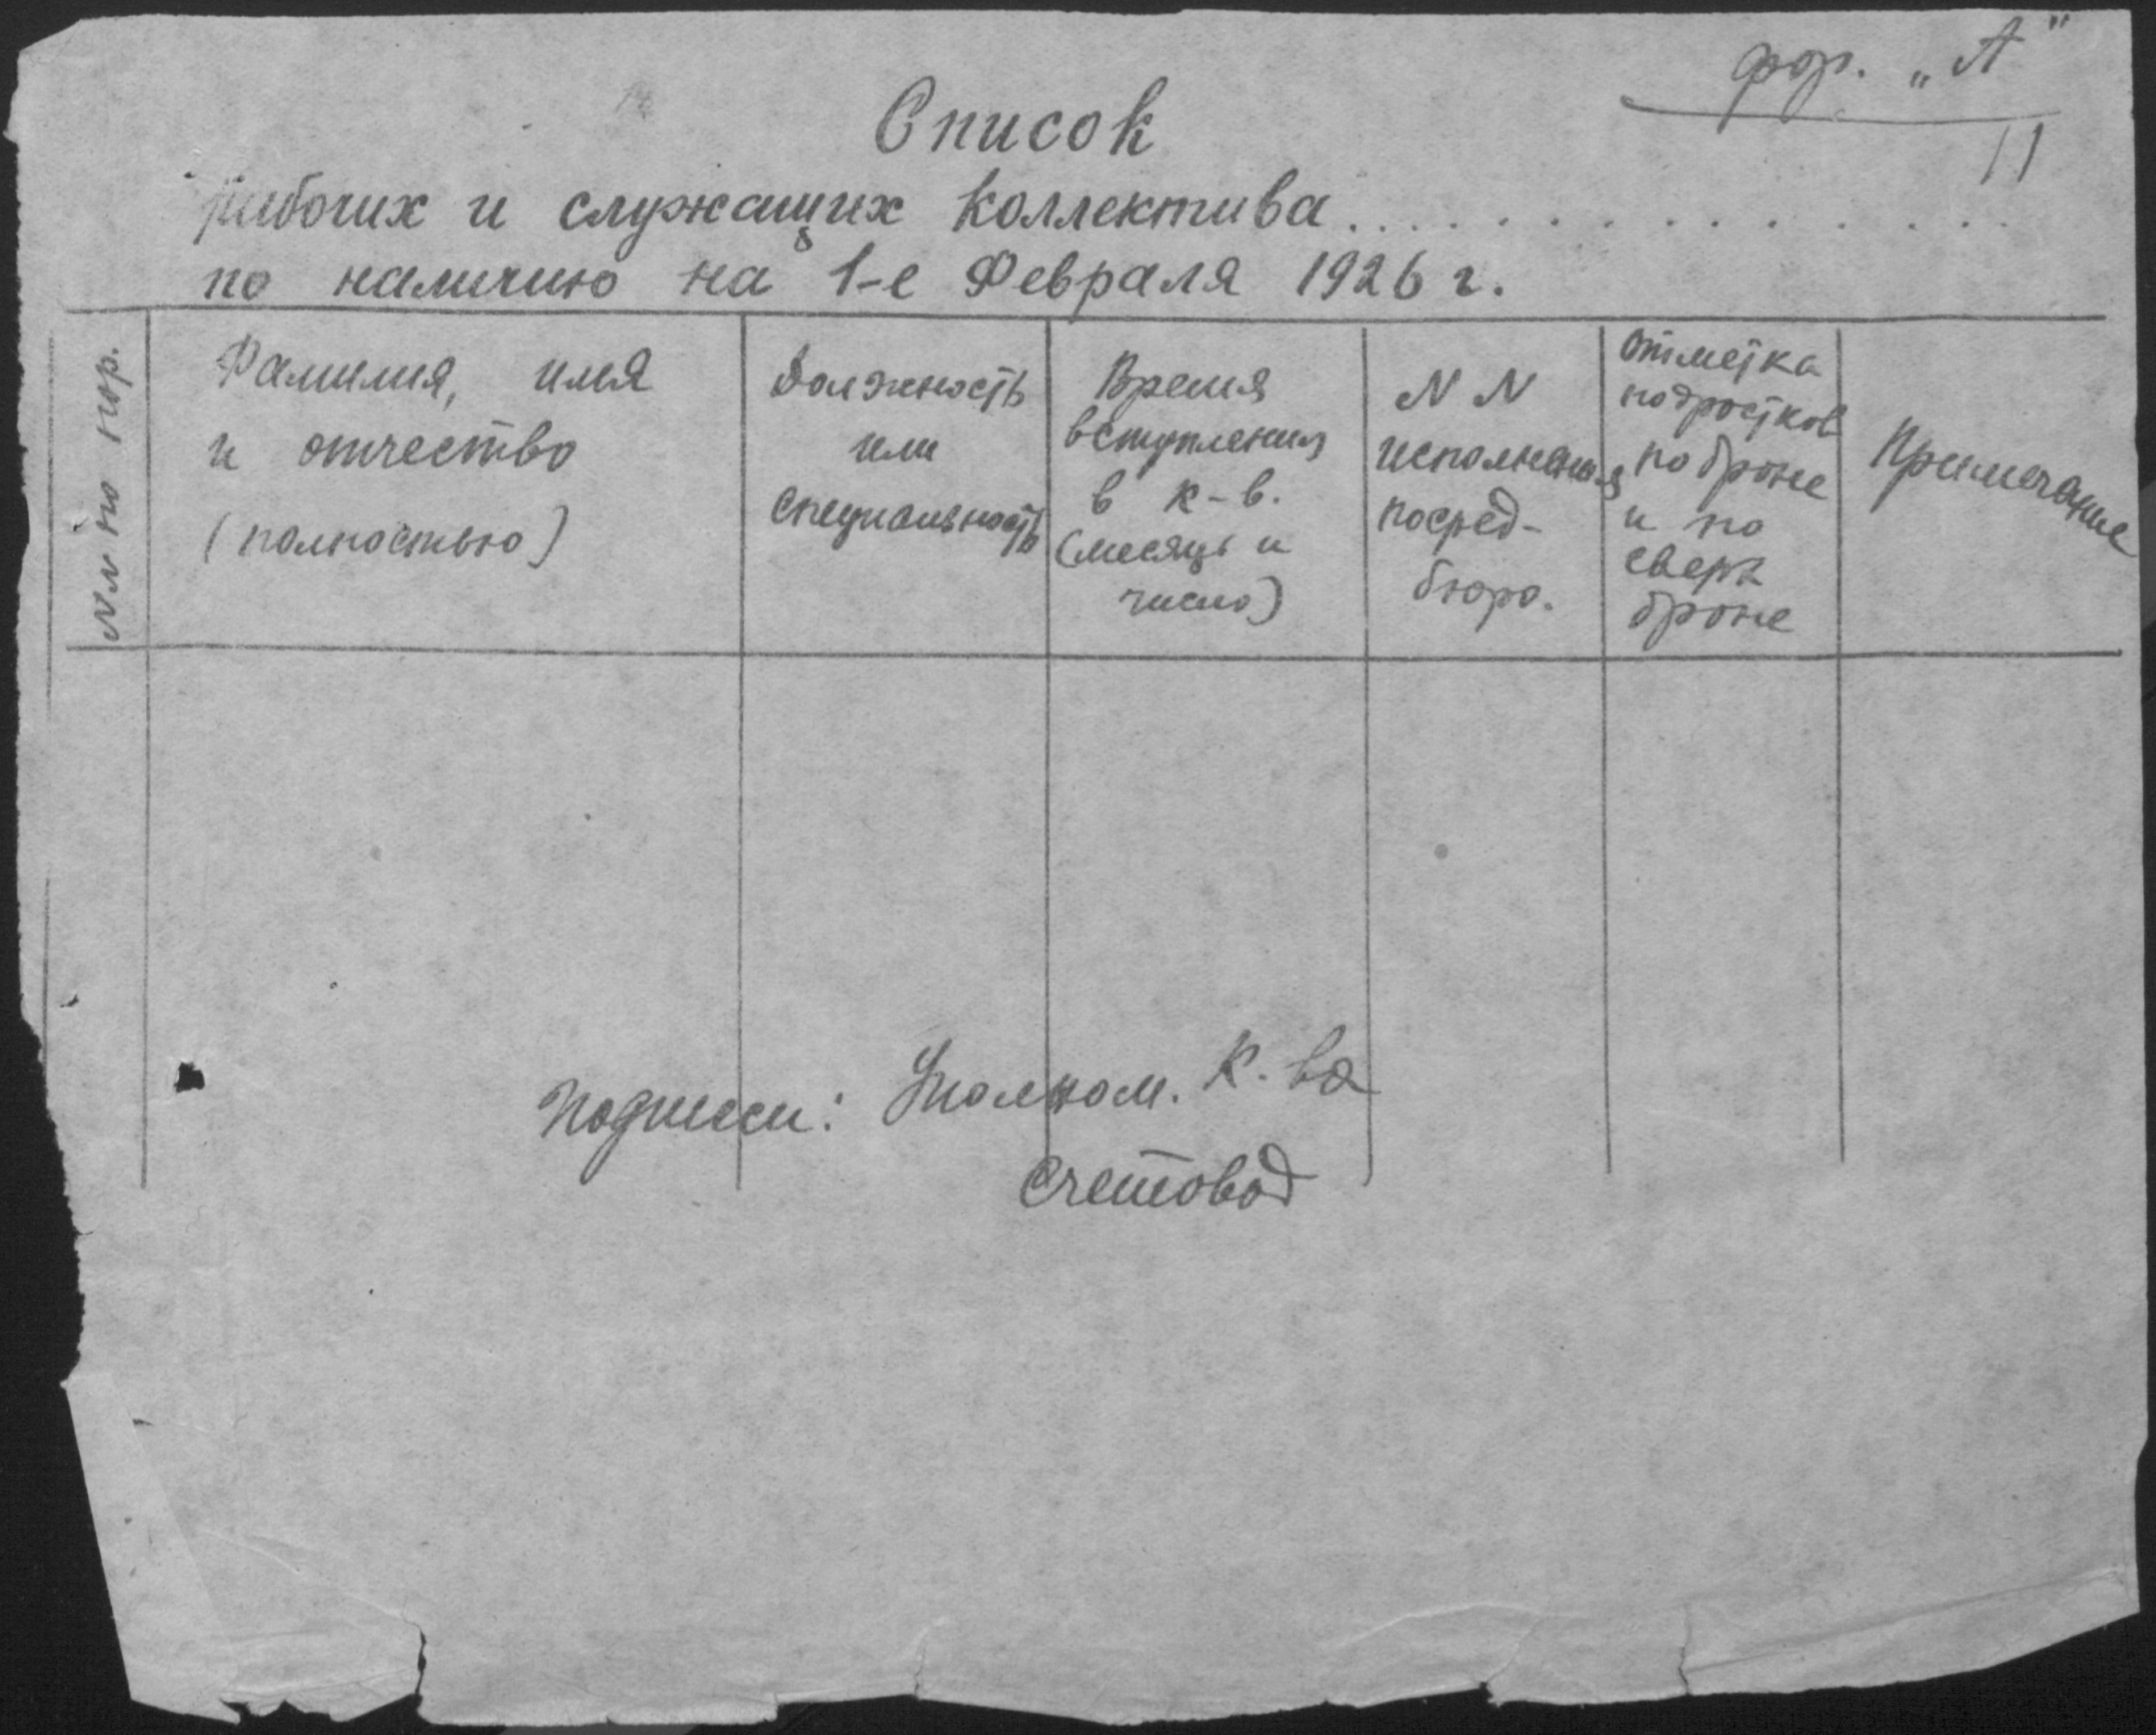 фор. „А"
11
Список
рабочих и служащих Коллектива . . . . . . . . . . . . . .
по наличию на 1-е Февраля 1926 г.
NN по пор.
Фамилия, имя
и отчество
(полностью)
Должность
или
специальность
Время
вступления
в к-в.
(месяць и
число)
N N
исполнения
посред-
бюро.
Отметка
подростков
по броне
и по
сверх
броне
Примечание
Подписи: Уполном. К-ва
Счетовод